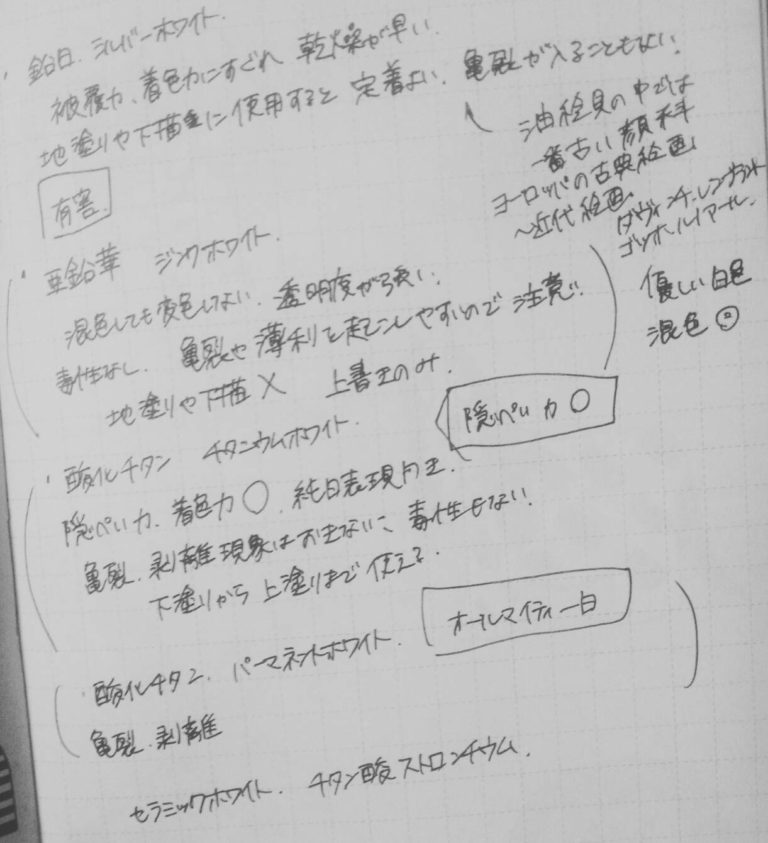 ・鉛白. シルバーホワイト.
被覆力、着色力にすぐれ 乾燥が早い.
地塗りや下描きに使用すると 定着よい. 亀裂が入ることもない.
油絵具の中では
一番古い顔料
ヨーロッパの古典絵画
〜近代絵画.
ダヴィンチ.レンブラント
ゴッホ.ルノアール.
有害.
・亜鉛華 ジンクホワイト.
混色しても変色しない. 透明度が強い.
毒性なし. 亀裂や薄利を起こしやすいので 注意!!
地塗りや下描 × 上書きのみ.
優しい白色
混色 ◎
・酸化チタン チタニウムホワイト.
隠ぺい力 ○
隠ぺい力. 着色力 ○. 純白表現向き.
亀裂. 剥離現象はおきない、毒性もない.
下塗りから上塗りまで 使える.
オールマイティー白
・酸化チタン. パーマネントホワイト.
亀裂.剥離
セラミックホワイト. チタン酸ストロンチウム.